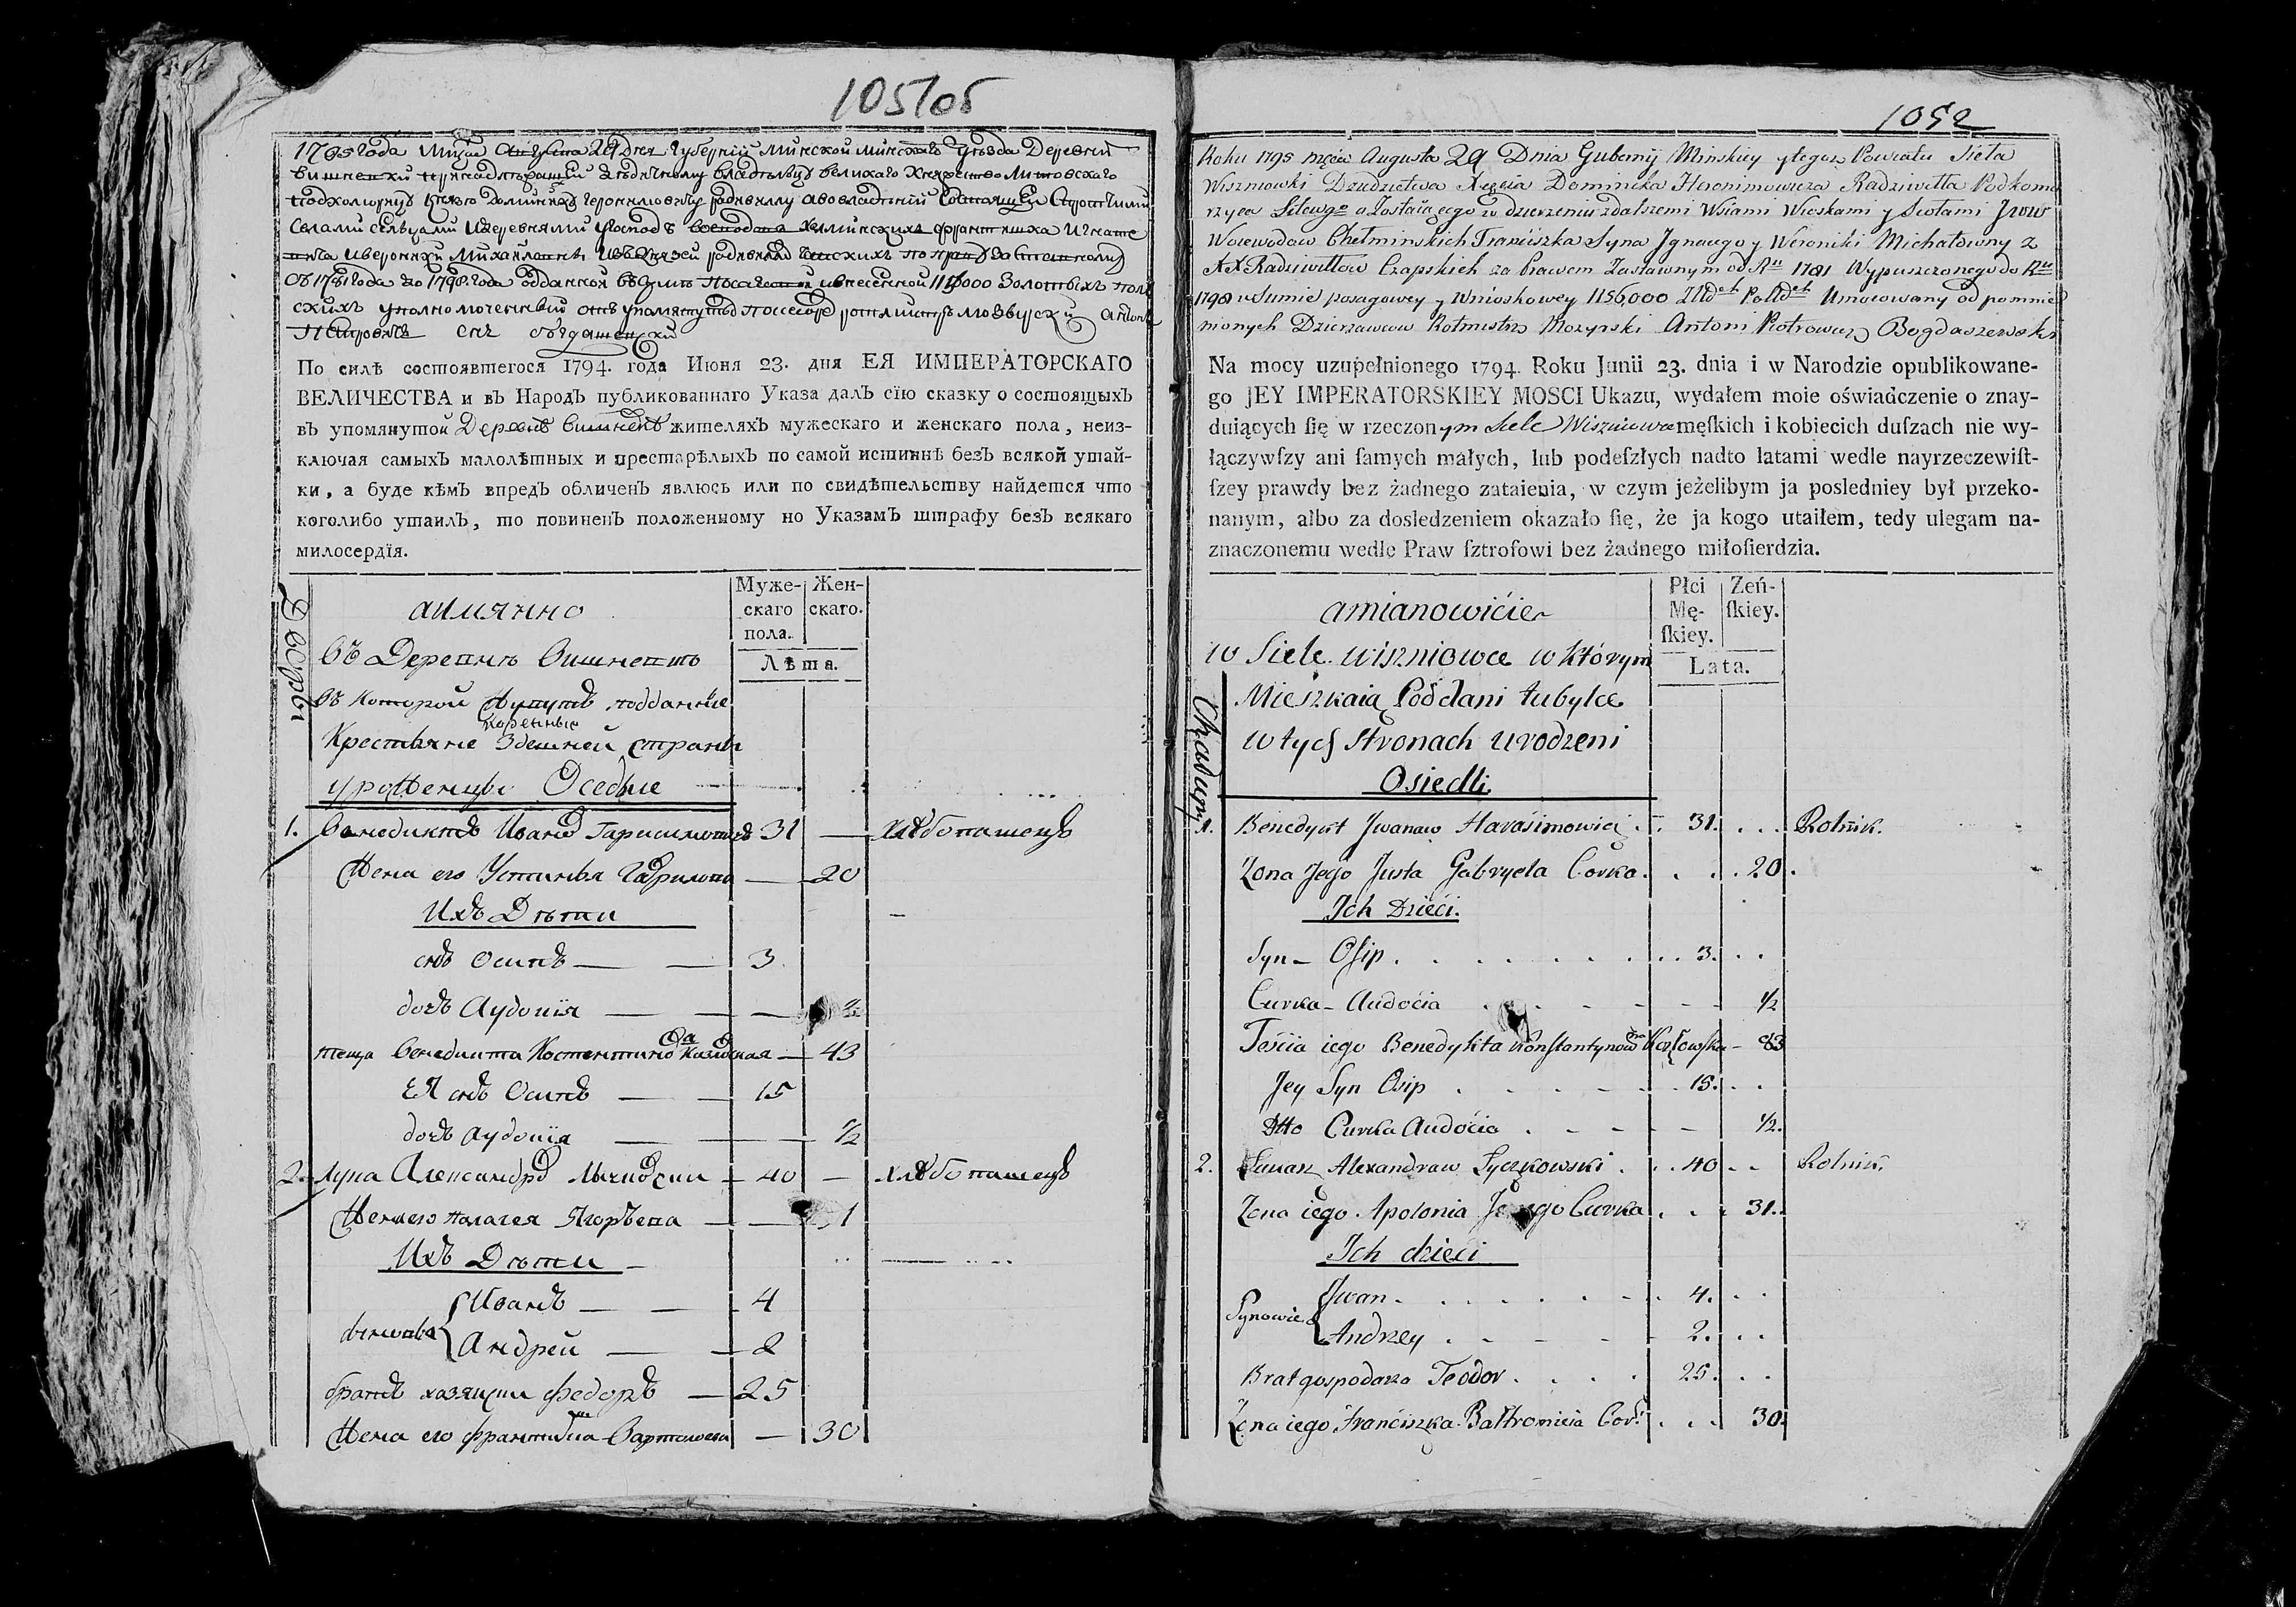 1051об
1795 года Мцѣа Августа 29 Дня Губерніи Минской Минскаго Уѣзда Деревни
Вишневки принадлежащей дѣдичному владѣльцу великаго Княжество Литовскаго
подкоморему Князю доминику Геронимовичу радивиллу а во владѣніи состоящей с протчими
селами сельцами и деревнями господъ воеводовъ хелминскихъ франтишка Игнате
вича и вероники Михайловны изъ Князей радивилъ
объ 1781 года до 1798 года отданной въ суммѣ посаговой и внесенной 1156000 золотыхъ пол
скихъ уполномоченный отъ упомянутыхъ поссесоровъ ротмистръ мозырскій антонъ
Петровичъ снъ богдашевскій
По силѣ состоявшегося 1794. года Июня 23. дня ЕЯ ИМПЕРАТОРСКАГО
ВЕЛИЧЕСТВА и въ Народъ публикованнаго Указа далъ сїю сказку о состоящыхъ
въ упомянутой Деревнѣ вишневкѣ жителяхъ мужескаго и женскаго пола, неиз-
ключая самыхъ малолѣтных и престарѣлыхъ по самой истиннѣ безъ всякой утай-
ки, а буде кѣмъ впредъ обличенъ явлюсь или по свидѣтельству найдется что
коголибо утаилъ, то повиненъ положенному по Указамъ штрафу безъ всякаго
милосердїя.
Муже-скаго пола. Жен-скаго.
Лѣта.
Дворы
аимянно
въ Деревнѣ вишневкѣ
въ которой живутъ подданные
коренные
Крестьяне здешней страны
уроженцы Оседлые
1. Бенедиктъ Ивановъ Гарисимовичъ 31 — хлѣбопашецъ
Жена его Устинья Гаврилова — 20
Ихъ Дѣти
снъ Осипъ — — 3
дочь Аудоція — — — ½
теща Бенедикта Костентинова Казловская — 43
ЕЯ снъ Осипъ — — 15
дочъ аудоція — — — ½
2. лука Александровъ лычковскии — 40 — хлѣбопашецъ
Жена его палагея Ягоръева — — 1
Ихъ Дѣти
сыновья { Иванъ — — 4
Андрей — — 2
братъ хазяины федоръ — 25
Жена его франтишка Вартоломева — 30
1052
Roku 1795 mca Augusta 29 Dnia Gubernij Minskiey y tegoż Powiatu Sieła
Wiszniowki Dziedzictwa Xięcia Dominika Heronimowicza Radziwiłła Podkomo
rzyca Litewgo a Zostaiącego w dzierzeniu z dalszemi Wsiami Wioskami y Siołami JWW
Woiewodow Chełminskich Franciszka Syna Jgnacego y Weroniki Michałowny z
XX Radziwiłłow Czapskich za Prawem Zastawnym od Ru 1781 Wypuszczonego do Ru
1798 w Sumie posagowey y Wnioskowey 1156,000 Złłdch Polldch Umocowany od pomnie
nionych Dzierzawcow Rotmistrz Mozyrski Antoni Piotrowicz Bogdaszewski
Na mocy uzupełnionego 1794. Roku Junii 23. dnia i w Narodzie opublikowane-
go JEY IMPERATORSKIEY MOSCI Ukazu, wydałem moie oświadczenie o znay-
duiących ſię w rzeczonym Siele Wiszniowce męſkich i kobiecich duſzach nie wy-
łączywſzy ani ſamych małych, lub podeſzłych nadto latami wedle nayrzeczewiſt-
ſzey prawdy bez żadnego zataienia, w czym jeżelibym ja posledniey był przeko-
nanym, albo za dosledzeniem okazało ſię, że ja kogo utaiłem, tedy ulegam na-
znaczonemu wedle Praw ſztrofowi bez żadnego miłoſierdzia.
Płci Mę-ſkiey. Zeń-ſkiey.
Lata.
Chałupy
amianowićie
w Siele wiszniowce w którym
Mieszkaią Poddani tubylce
w tych stronach urodzeni
Osiedli.
1. Benedykt Jwanaw Harasimowicz . . 31. . . . Rolnik.
Zona Jego Justa Gabryela Corka . . . . 20.
Jch Dzieći.
Syn - Osip . . . . . . . . . 3. . .
Curka - Audocia . . . . - - ½
Teściia iego Benedykta Konstantynowna Kozłowska - 83
Jey Syn Osip . . . . . . 15. . .
Dtto Curka Audocia . - - - - ½.
2. Łukasz Alexandraw Łyczkowski . . . 40 - - Rolnik.
Zona iego Apolonia Curka . . . 31.
Jch dzieci
Synowie { Jwan . . . . . . . . 4. . .
Andrzey . . . . . 2. . .
Brat gospodarza Teodor . . . . 25. . .
Zona iego Franćiszka Bałtromieia Cor: . . . 30.